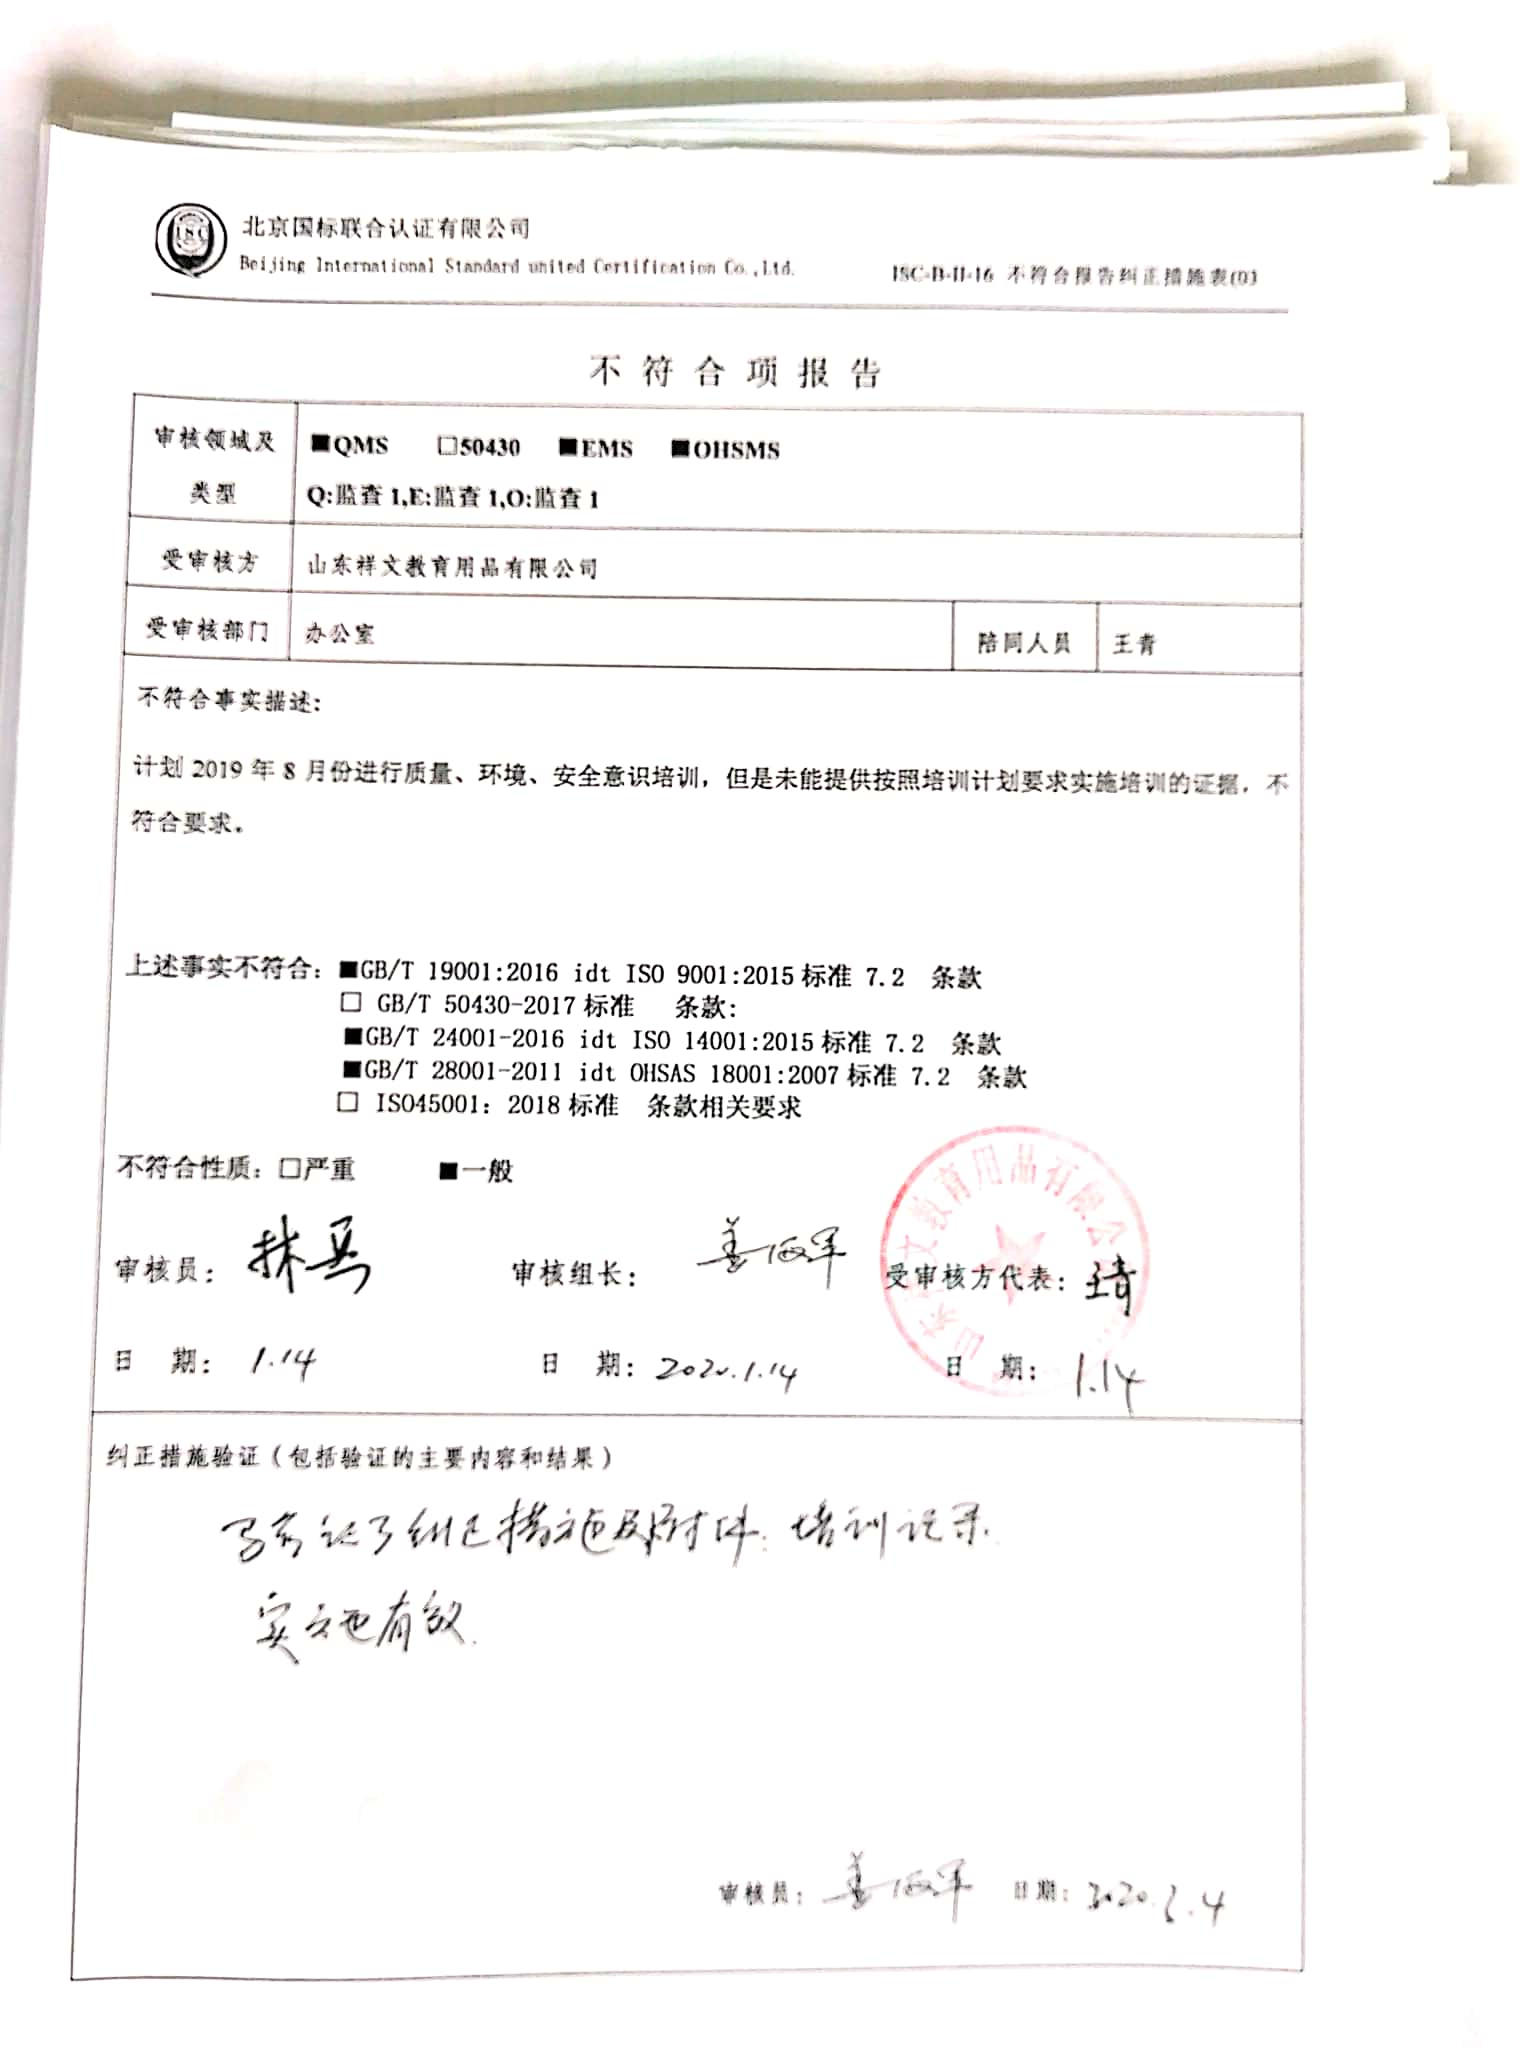 北京国标联合认证有限公司
Beijing International Standard united Certification Co.,Ltd.
ISC-B-II-16 不符合报告纠正措施表(03
不符合项报告
审核领域及类型
■QMS □50430 ■EMS ■OHSMS
Q:监查1,E:监查1,O:监查1
受审核方 山东祥文教育用品有限公司
受审核部门 办公室 陪同人员 王青
不符合事实描述:
计划 2019 年 8 月份进行质量、环境、安全意识培训，但是未能提供按照培训计划要求实施培训的证据，不
符合要求。
上述事实不符合: ■GB/T 19001:2016 idt ISO 9001:2015 标准 7.2 条款
□ GB/T 50430-2017 标准 条款:
■GB/T 24001-2016 idt ISO 14001:2015 标准 7.2 条款
■GB/T 28001-2011 idt OHSAS 18001:2007 标准 7.2 条款
□ ISO45001: 2018 标准 条款相关要求
不符合性质: □严重 ■一般
审核员: 林兵 审核组长: 姜海军 受审核方代表: 王青
日 期: 1.14 日 期: 2020.1.14 日 期: 1.14
山东祥文教育用品有限公司
纠正措施验证（包括验证的主要内容和结果）
验证了纠正措施及附件: 培训记录.
实施有效.
审核员: 姜海军 日期: 2020.3.4